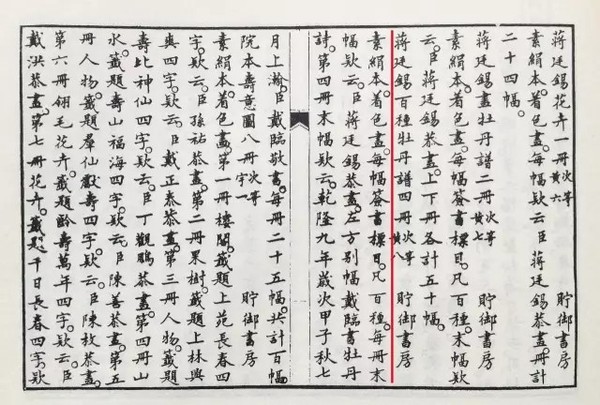 蔣廷錫花卉一冊次等黃六　貯御書房
素絹本着色畫每幅欵云臣蔣廷錫恭畫冊計
二十四幅
蔣廷錫畫牡丹譜二冊次等黃七　貯御書房
素絹本着色畫每幅簽書標目凡百種末幅欵
云臣蔣廷錫恭畫上下冊各計五十幅
蔣廷錫百種牡丹譜四冊次等黃八　貯御書房
素絹本着色畫每幅簽書標目凡百種每冊末
幅欵云臣蔣廷錫恭畫左方別幅戴臨書牡丹
詩第四冊末幅欵云乾隆九年歲次甲子秋七
月上瀚臣戴臨敬書每冊二十五幅共計百幅
院本壽意圖八冊次等宇一　貯御書房
素絹本着色畫第一冊樓閣籤題上苑長春四
字欵云臣孫祜恭畫第二冊果樹籤題上林與
與四字欵云臣戴正泰恭畫第三冊人物籤題
壽比神仙四字欵云臣丁觀鵬恭畫第四冊山
水籤題壽山福海四字欵云臣陳善恭畫第五
冊人物籤題羣仙獻壽四字欵云臣陳枚恭畫
第六冊翎毛花卉籤題齡壽萬年四字欵云臣
戴洪恭畫第七冊花卉籤題千日長春四字欵